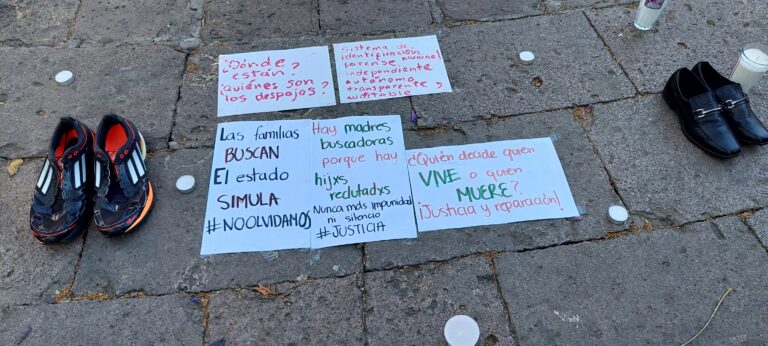 ¿Dónde
están?
¿Quiénes son
los despojos?
Sistema de
identificación
forense nacional
independiente
autónoma
transparente y
auditable
Las familias
BUSCAN
El estado
SIMULA
#NOOLVIDAMOS
Hay madres
buscadoras
porque hay
hijxs
reclutadxs
Nunca más impunidad
ni silencio
#JUSTICIA
¿Quién decide quien
VIVE o quien
MUERE?
¡Justicia y reparación!